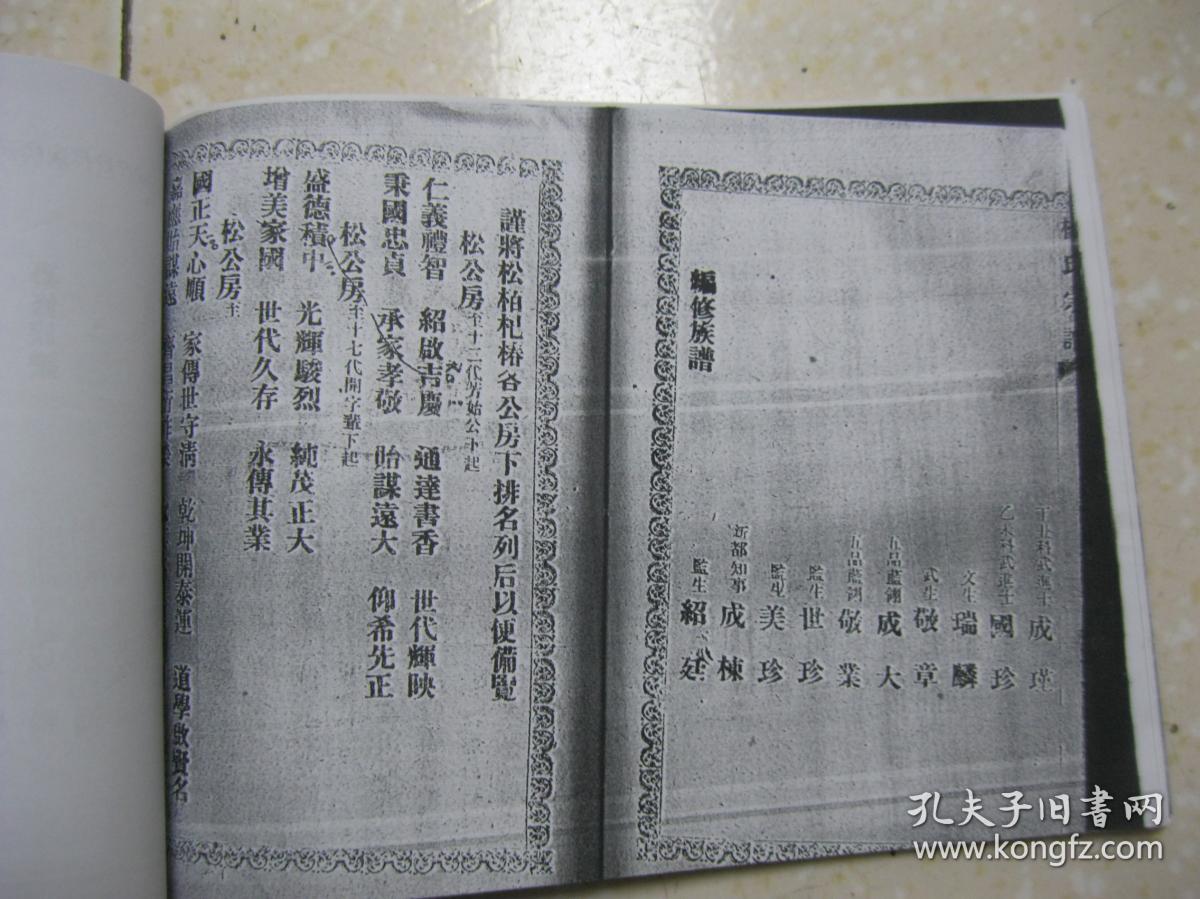 丁丑科武進士 成瑾
乙未科武進士 國珍
文生 瑞麟
武生 敬章
五品藍翎 成大
五品藍翎 敬業
監生 世珍
監生 美珍
新都知事 成棟
監生 紹廷
編修族譜
謹將松柏杞椿各公房下排名列后以便備覽
松公房至十二代芳始公下起
仁義禮智 紹啟吉慶 通達書香 世代輝映
秉國忠貞 承家孝敬 貽謀遠大 仰希先正
松公房至十七代開字輩下起
盛德積中 光輝駿烈 純茂正大
增美家國 世代久存 永傳其業
松公房至
國正天心順 家傳世守清 乾坤開泰運 道學啟賢名
孔夫子旧书网
www.kongfz.com